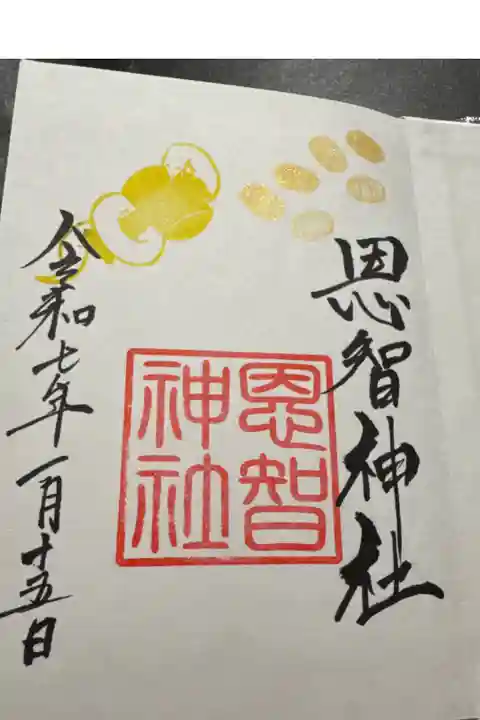 恩智神社
恩智
神社
令和七年一月十五日